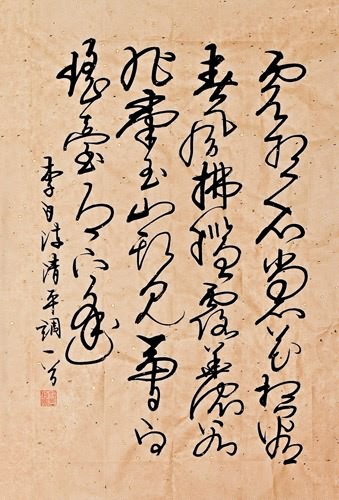 雲想衣裳花想容
春風拂檻露華濃若
非羣玉山頭見會向
瑤臺月下逢
李白詩清平調一首